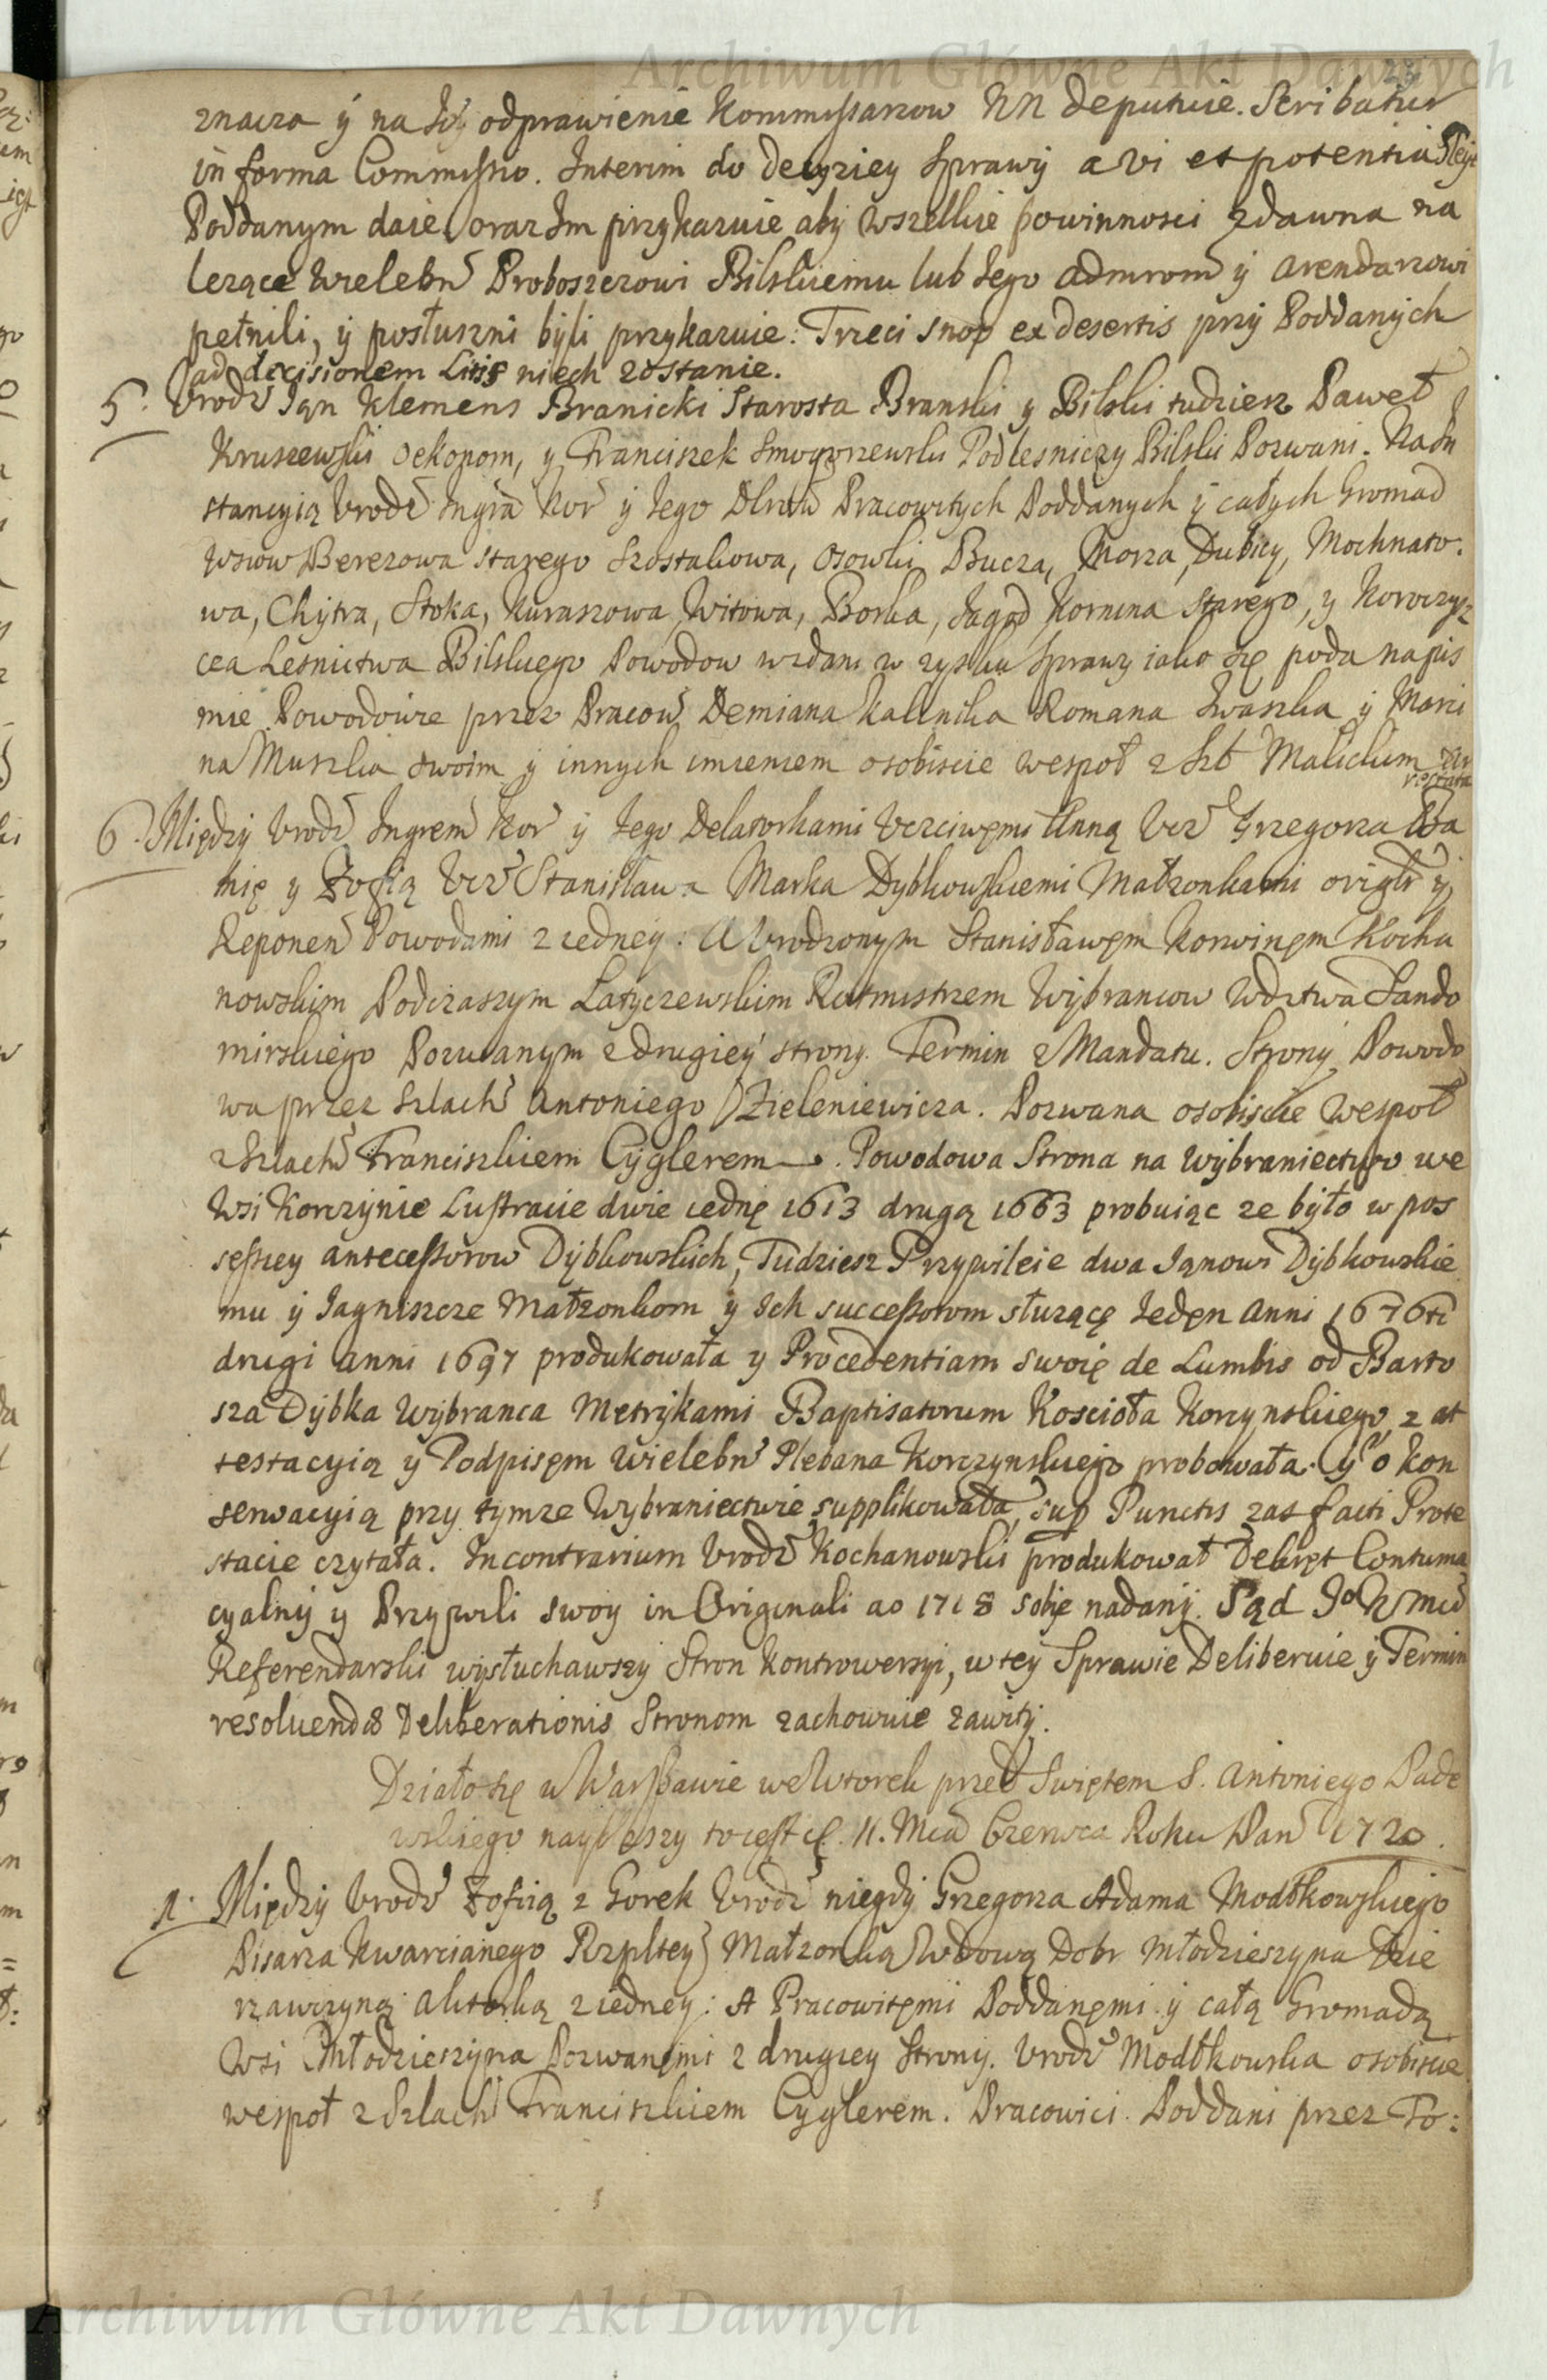 Archiwum Główne Akt Dawnych
23
znacza y na Iey odprawienie Kommissarzow NN deputuie. Scribatur
in forma Commissio. Interim do decyziey Sprawy a vi et potentia Gleyt
Poddanym daie, oraz Im przykazuie aby wszelkie powinnosci zdawna na
lezące Wielebn Proboszczowi Bilskiemu lub Iego Admrom y Arendarzowi
pełnili, y posłuszni byli przykazuie. Trzeci snop ex desertis przy Poddanych
ad decisionem Litis niech zostanie.
5. Vrodz Ian Klemens Branicki Starosta Branski y Bilski tudziesz Paweł
Kruszewski Oekonom, y Franciszek Smogorzewski Podlesniczy Bilski Pozwani. Na In
stancyią Vrodz Ingra Kor y Iego Dlrow Pracowitych Poddanych y całych Gromad
Wsiow Berezowa starego Szostakowa, Osowki, Bucza, Morza, Dubicy, Mochnato.
wa, Chytra, Stoka, Kuraszowa, Witowa, Borka, Jagod, Kornina starego, y Koroczys
cea Lesnictwa Bilskiego Powodow wzdani w zysku Sprawy iako się poda na pis
mie Powodowie przez Pracow Demiana Kalenika Romana Iwaszka y Marci
na Muszka swoim y innych imieniem osobiscie wespoł z Szl Malickim
6. Między Vrodz Ingrem Kor y Iego Delatorkami Vczciwemi Anną Vcz Grzegorza Ba
nię y Zofią Vcz Stanisława Marka Dybkowskiemi Małzonkami origlr y
Reponen Powodami z iedney: A Vrodzonym Stanisławem Korwinem Kocha
nowskim Podczaszym Latyczewskim Rotmistrzem Wybrancow Wdztwa Sando
mirskiego Pozwanym z drugiey strony. Termin z Mandatu. Strony Powodo
wa przez Szlach Antoniego Zieleniewicza. Pozwana osobiscie wespoł
z Szlach Franciszkiem Cyglerem. Powodowa Strona na Wybraniectwo we
Wsi Korczynie Lustracie dwie iednę 1613 drugą 1663 probuiąc ze było w pos
sessiey antecessorow Dybkowskich, Tudziesz Przywileie dwa Ianowi Dybkowskie
mu y Iagniszcze Małzonkom y Ich successorom słuzącę Ieden Anni 1676ti
drugi Anni 1697 produkowała y Procedentiam swoię de Lumbis od Barto
sza Dybka Wybranca Metrykami Baptisatorum Koscioła Korzynskiego z at
testacyią y Podpisem Wielebn Plebana Korczynskiego probowała. y o kon
serwacyią przy tymze Wybraniectwie supplikowała, sup Punctis zas facti Prote
stacie czytała. In contrarium Vrodz Kochanowski produkował Dekret Contuma
cyalny y Przywili swoy in Originali ao 1718 sobie nadany. Sąd I K Mci
Referendarski wysłuchawszy Stron kontrowersyi, w tey Sprawie Deliberuie y Termin
resoluendæ Deliberationis Stronom zachowuie zawity.
Działo się w Warszawie we Wtorek przed Swiętem S. Antoniego Pade
wskiego naybliszy to iest d. 11. Mca Czerwca Roku Pan 1720.
1. Między Vrodz Zofiią z Gorek Vrodz niegdy Grzegorza Adama Modłkowskiego
Pisarza Kwarcianego Rzpltey Małzonką Wdową Dobr Młodzieszyna Dzie
rzawczyną Aktorką z iedney: A Pracowitemi Poddanemi y całą Gromadą
Wsi Młodzieszyna Pozwanemi z drugiey Strony. Vrodz Modłkowska osobiscie
wespoł z Szlach Franciszkiem Cyglerem. Pracowici Poddani przez To:
Archiwum Główne Akt Dawnych